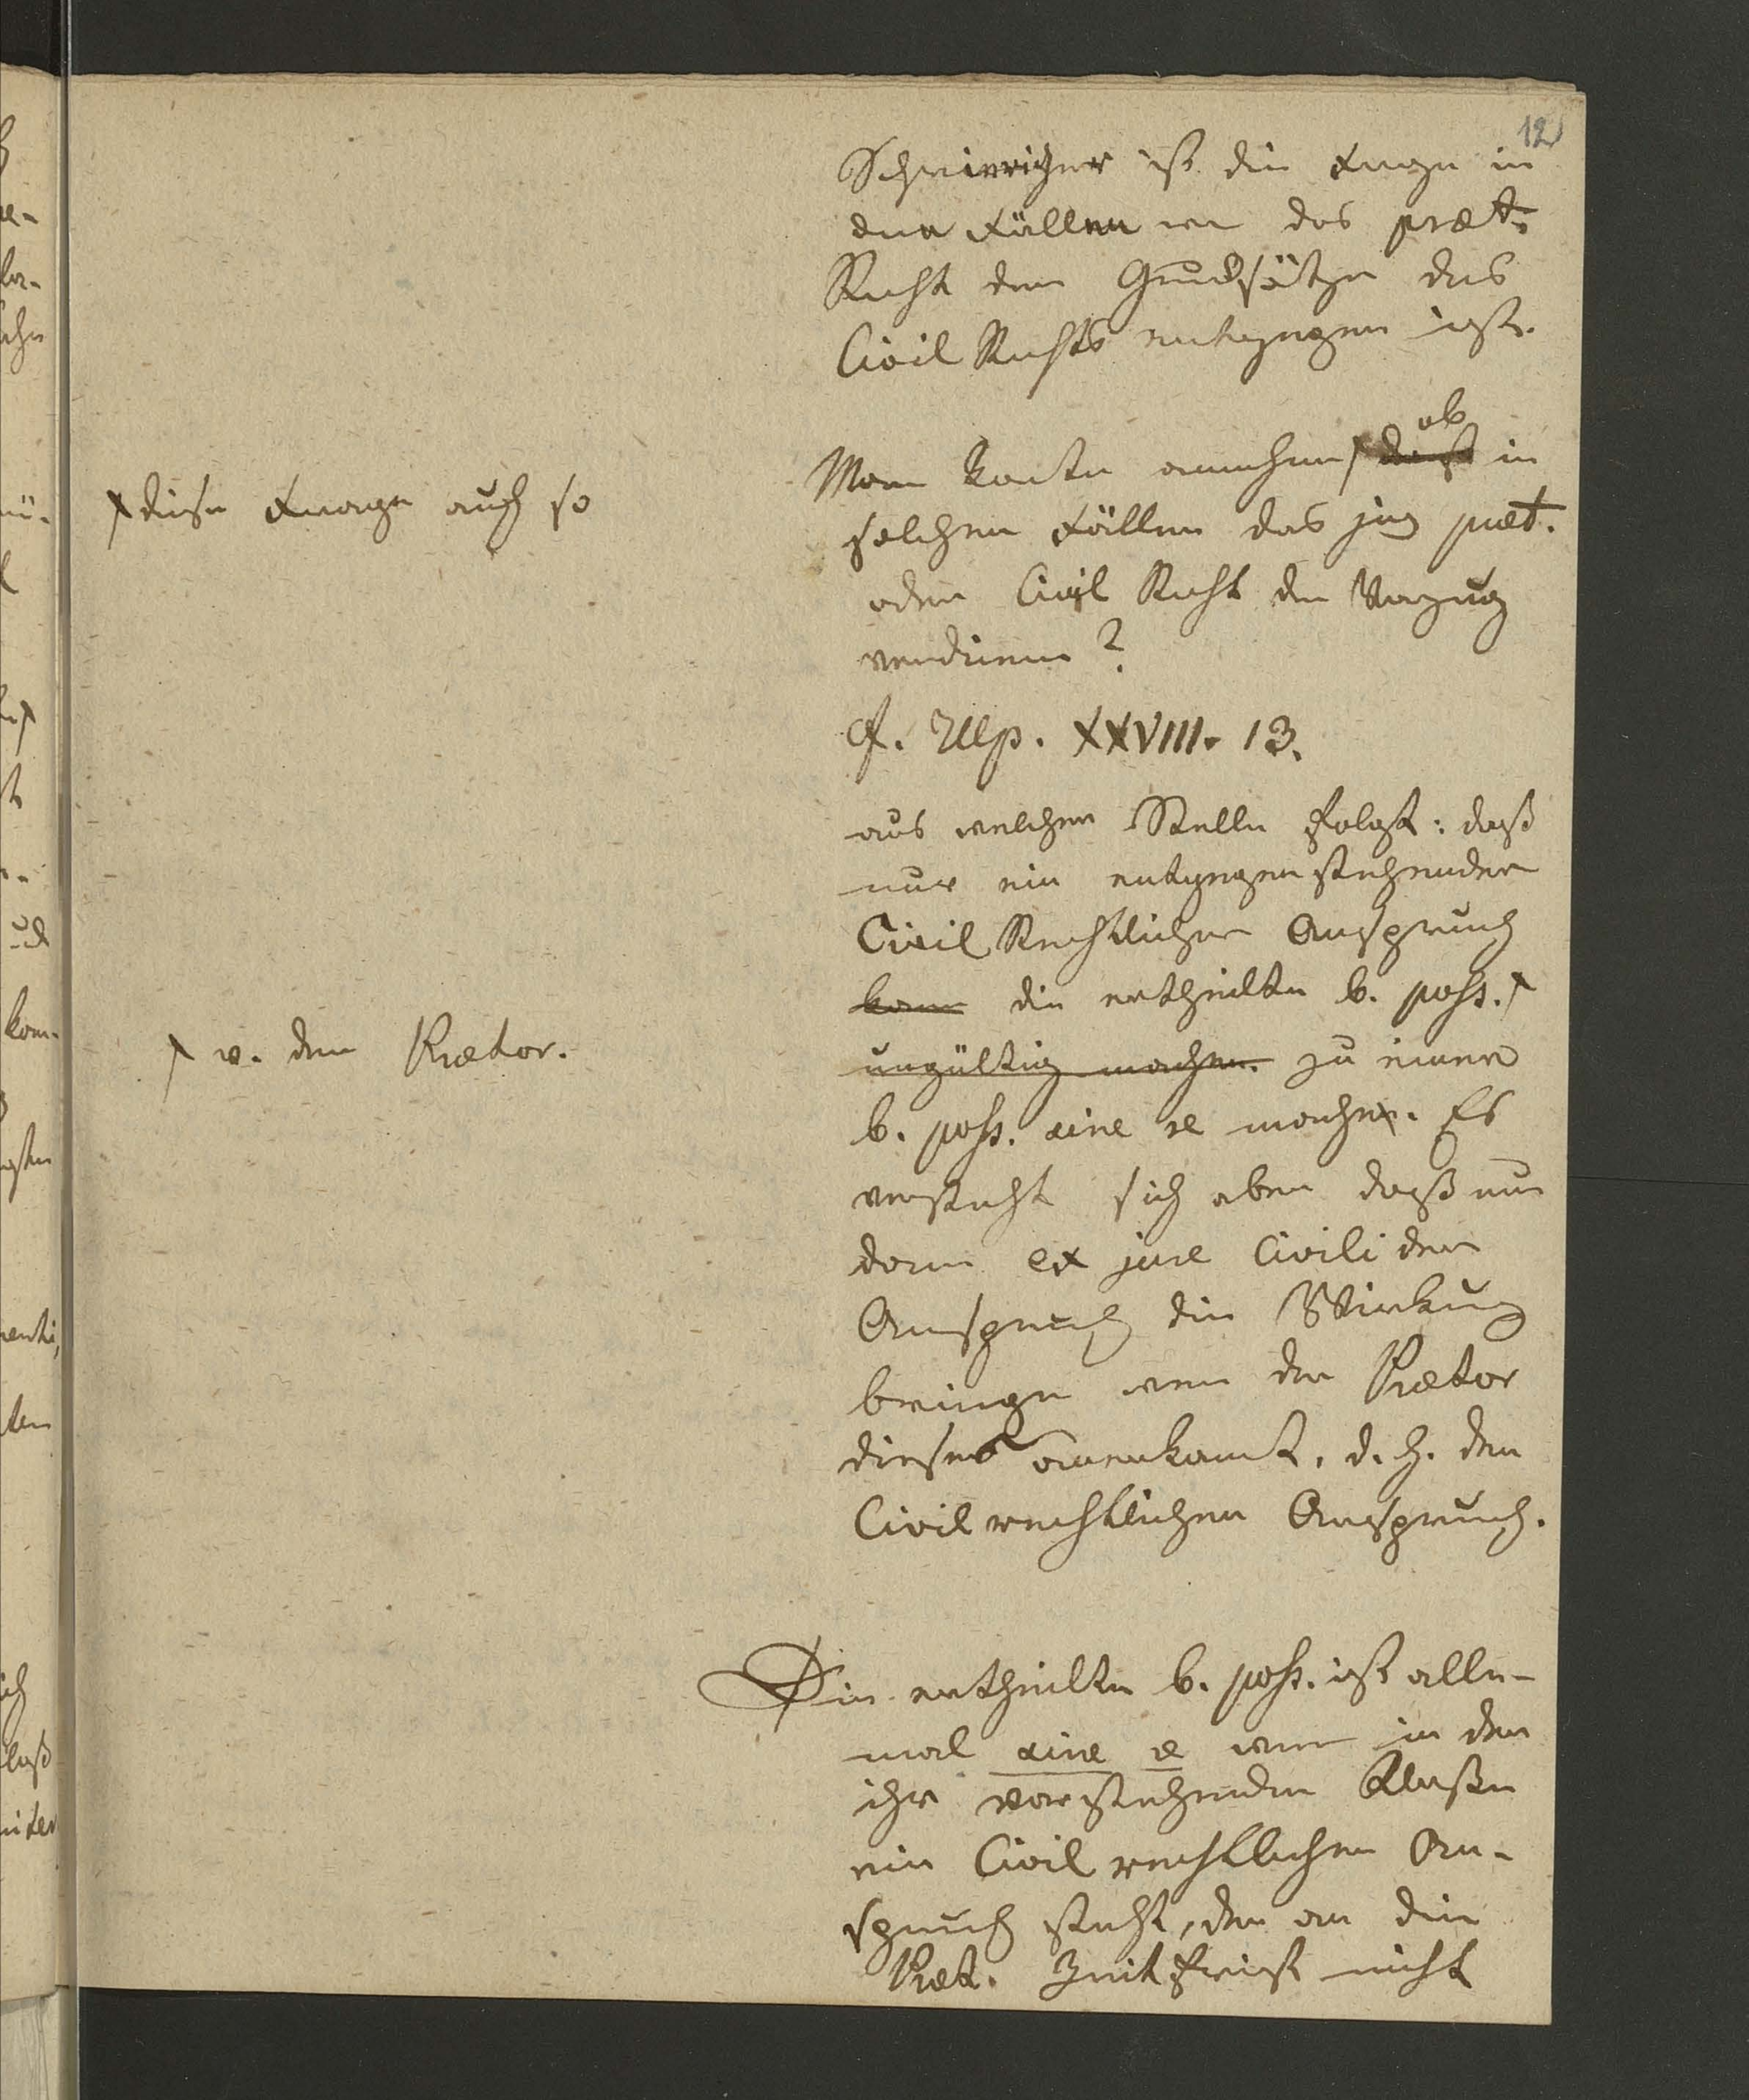 12
Schwieriger ist die Frage in
den Fällen wo das præt.
Recht den Grundsätzen des
Civil Rechts entgegen ist.
Man konte annehmen daß ob in
diese Frage auch so
solchen Fällen das jus præt.
oder Civil Recht den Vorzug
verdienen?
cf. Ulp. XXVIII. 13.
aus welcher Stelle folgt: daß
nur ein entgegenstehender
Civil Rechtlicher Anspruch
kann die ertheilte b. poss.
v. dem Prætor.
ungültig machen. zu einer
b. poss. sine re machen. Es
versteht sich aber daß nur
dann ex jure Civili der
Anspruch die Wirkung
bringe wenn der Prætor
dieses anerkannt, d. h. den
Civil rechtlichen Anspruch.
Die ertheilte b. poss. ist alle-
mal sine re wenn in den
ihr vorstehenden Klaßen
ein Civil rechtlicher An-
spruch steht, der an die
Præt. Zeitfrist nicht